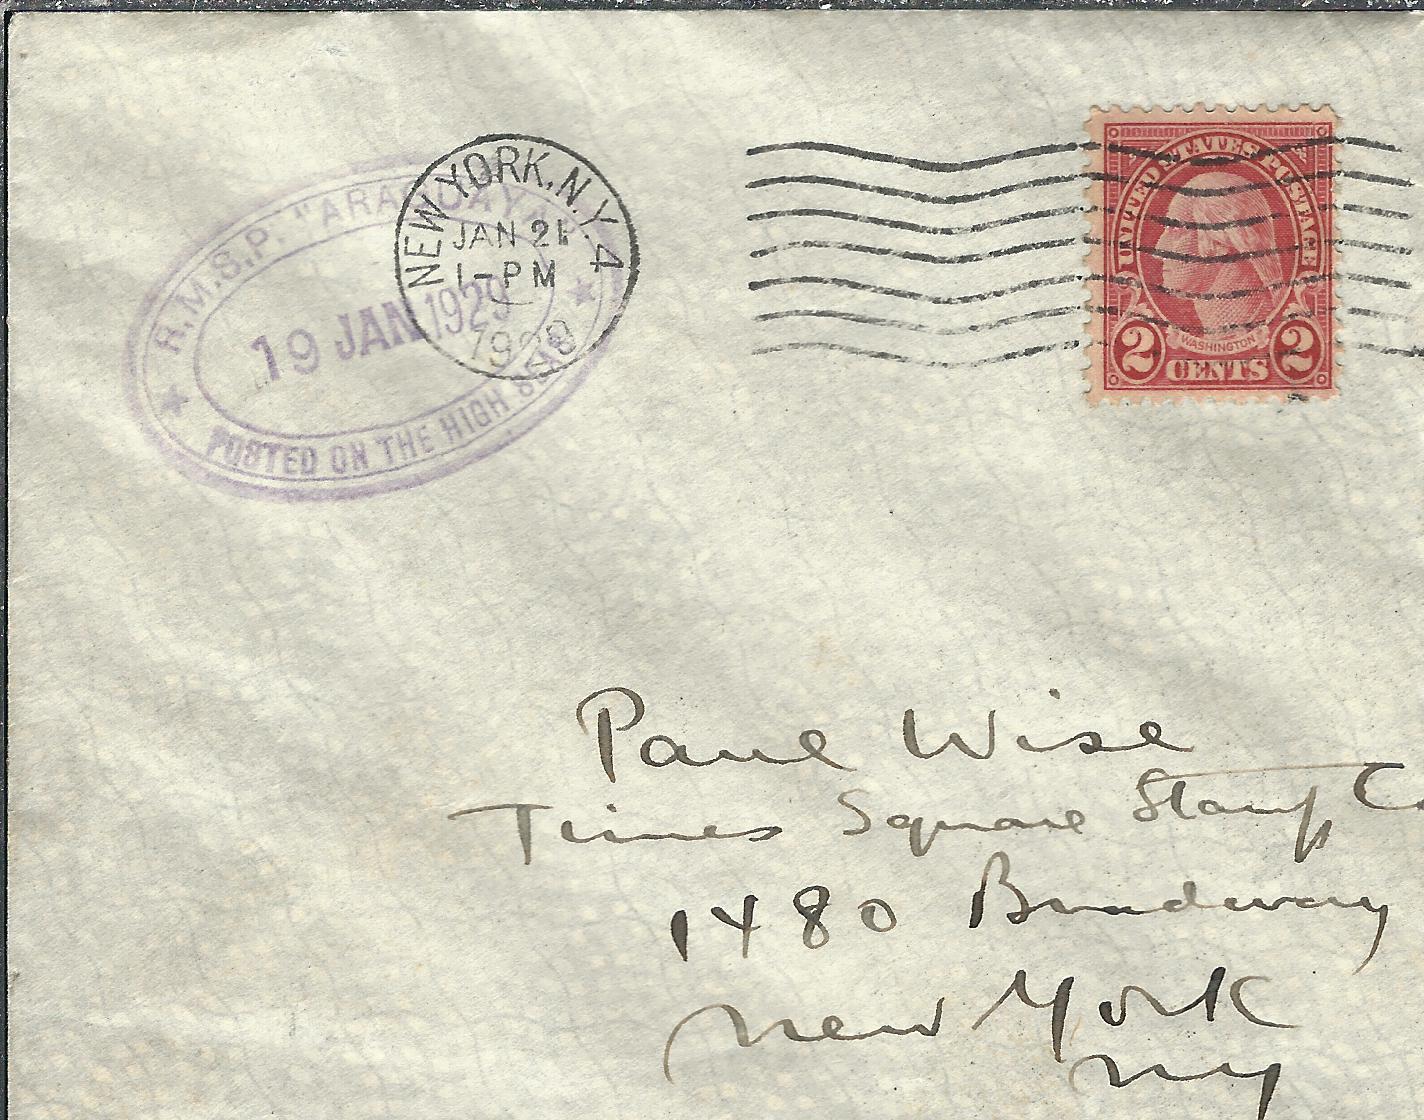 R.M.S.P. "ARAGUAYA"
19 JAN 1929
POSTED ON THE HIGH SEAS
NEW YORK, N.Y. 4
JAN 21
1-PM
1929
UNITED STATES POSTAGE
WASHINGTON
2 CENTS 2
Paul Wise
Times Square Stamp Co
1480 Broadway
New York
NY